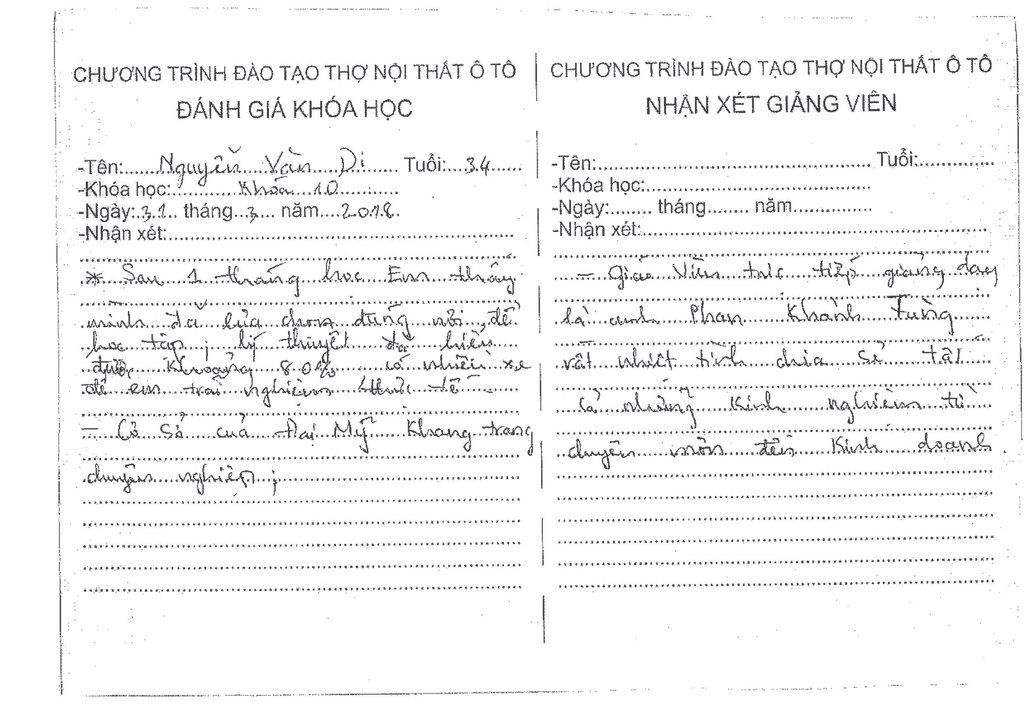 CHƯƠNG TRÌNH ĐÀO TẠO THỢ NỘI THẤT Ô TÔ
ĐÁNH GIÁ KHÓA HỌC
-Tên: Nguyễn Văn Di Tuổi: 34
-Khóa học: Khóa 10
-Ngày: 31 tháng 3 năm 2018
-Nhận xét:
* Sau 1 tháng học Em thấy
mình đã lựa chọn đúng nơi để
học tập, lý thuyết đã hiểu
được Khoảng 80% có nhiều xe
để em trải nghiệm thực tế
- Cơ Sở của Đại Mỹ Khang trang
chuyên nghiệp;
CHƯƠNG TRÌNH ĐÀO TẠO THỢ NỘI THẤT Ô TÔ
NHẬN XÉT GIẢNG VIÊN
-Tên: Tuổi:
-Khóa học:
-Ngày: tháng năm
-Nhận xét:
- Giáo Viên trực tiếp giảng dạy
là anh Phan Khánh Tùng
rất nhiệt tình chia Sẻ tất
cả những Kinh nghiệm từ
chuyên môn đến Kinh doanh